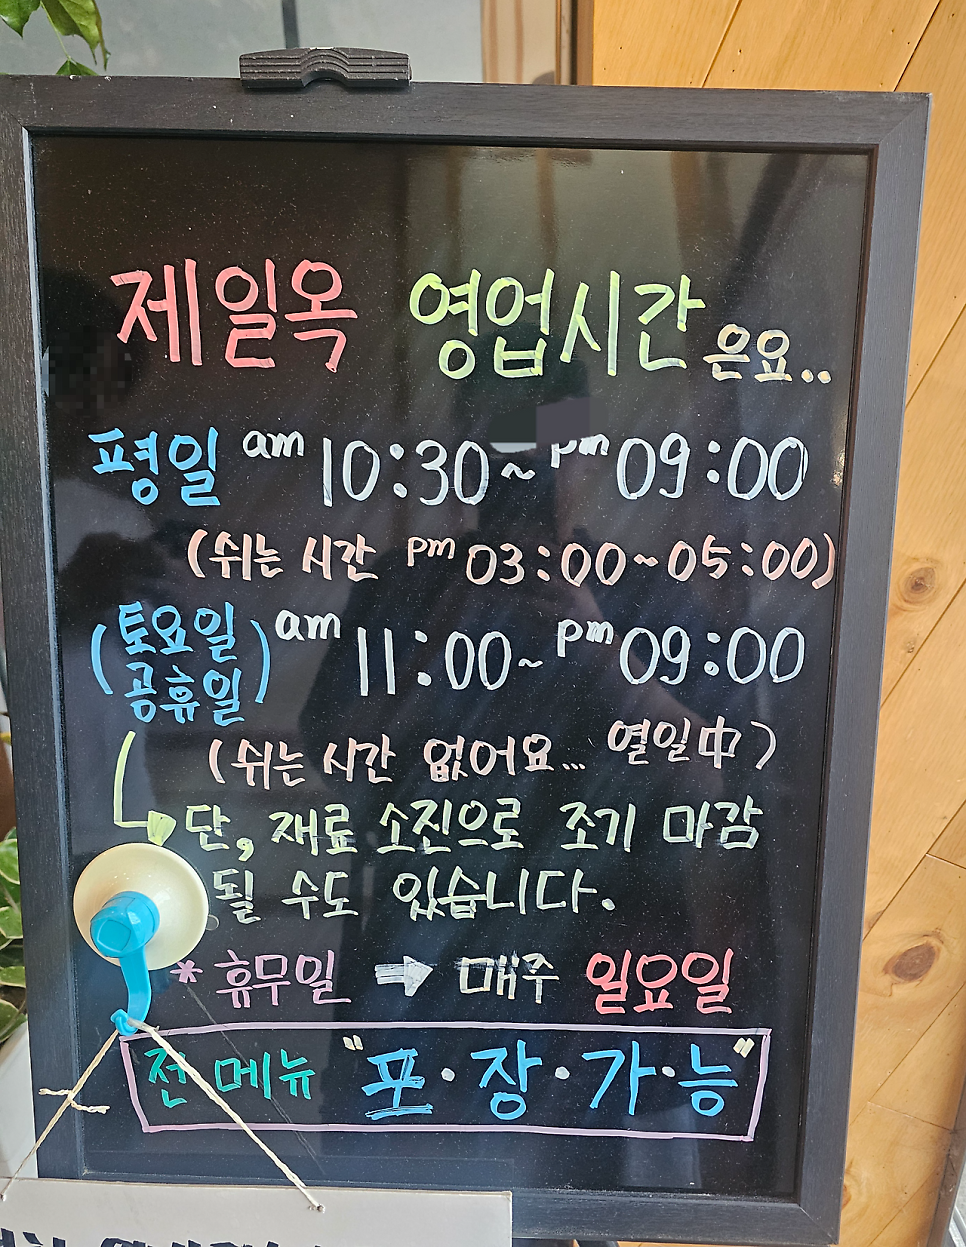 제일옥 영업시간은요..
평일 am 10:30~ pm 09:00
(쉬는 시간 pm 03:00~05:00)
(토요일 공휴일) am 11:00~ pm 09:00
(쉬는 시간 없어요... 열일中)
단, 재료 소진으로 조기 마감
될 수도 있습니다.
* 휴무일 ➡ 매주 일요일
전 메뉴 "포·장·가·능"